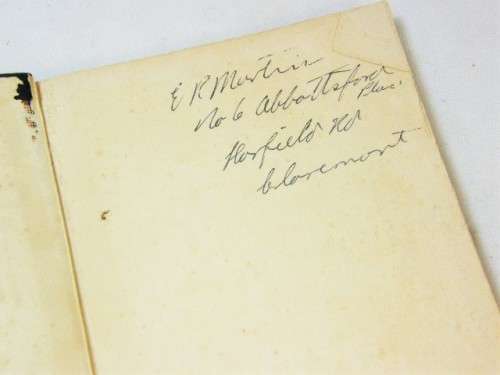 E R Martin
No 6 Abbottsford
Plac.
Harfield Rd
Claremont